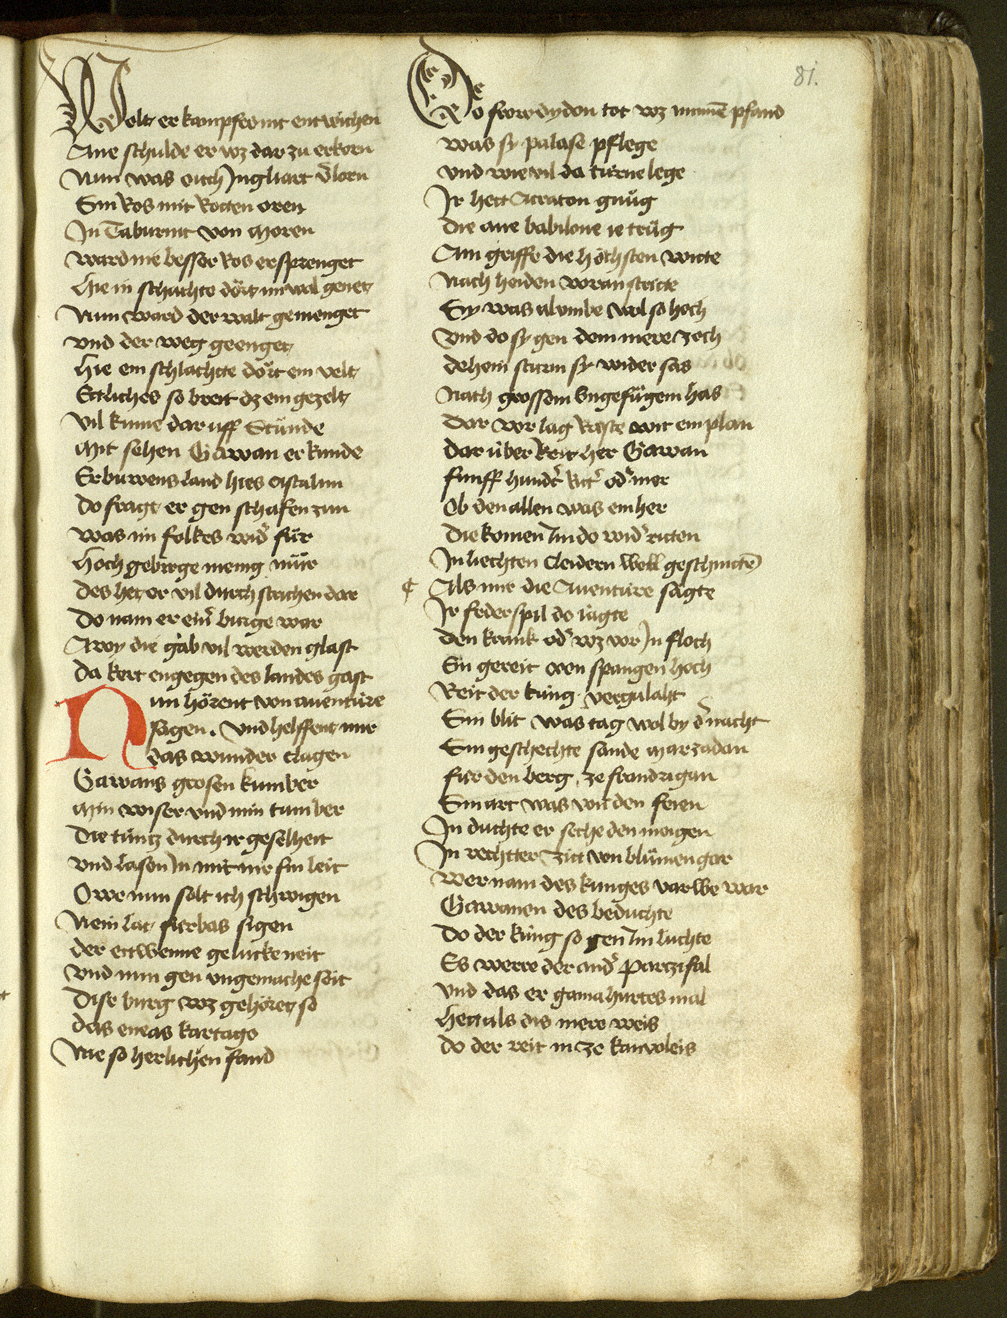 81.
Wolt er kampfes nit entwichen
Ane schulde er wz dar zu erkorn
Nun was ouch Jngliart v͛lorn
Ein Ros mit kotten oren
Jn Taburnit von moren
ward nie besser Ros ersprenget
Hie in schachte dört im wal gener
Nun ward der walt gemenget
und der weg geenget
Hie ein schlachtte dört ein velt
Ettliches so breit dz ein gezelt
vil kume dar uff Stunde
Mit sehen Gawan erkunde
Erburwens land hies astalun
Do fragt er gen schafenzun
was im folkes wid͛ für
Hoch gebirge menig mür
Des het er vil durch strichen dar
Do nam er ein͛ burge war
Awoy die gab vil werden glast
Da kert engegen des landes gast
Nun hörent von auentüre
sagen. Vnd helffent mir
das wunder clagen
Gawans grosen kumber
Min wiser vnd min tumber
Die tüng durch ir geselheit
vnd lason Jn mit mir sin leit
Owe nun solt ich schwigen
Nein lat fürbas sigen
der ettwenne gelucke neit
vnd nun gen ungemache seit
Dise burg wz gehöret so
das eneas kartago
Nie so herlichen fand
Do frow dydon tot wz minnē pfand
was sy palase pflege
vnd wie vil da türne lege
Jr hett Acraton gnůg
Die ane babilone ie trůg
Am griffe die höchsten witte
Nach heiden woran stritte
Sy was alumbe wol so hoch
Vnd do sy gen dem mere zoch
dehein sturm sy wider sas
Nach grossem Vngefügem has
Dar vor lag Raste wit ein plan
dar über Reit her Gawan
funff hund͛t Rit͛ od͛ mer
Ob den allen was ein her
Die komen Jm do wid͛ ritten
Jn liechten cleidern woll geschnittē
Als mir die Auentüre sagte
Jr federspil do iagte
den krank od͛ wz vor Jn floch
Ein gereit von spangen hoch
Reit der kung vergulaht
Sin blik was tag wol by d͛ nacht
Sin geschechte sande marzadan
für den berg ze feandrigan
Sin art was von den feien
Jn duchte er seche den meigen
Jn rechtter zitt von blümen gar
wer nam des kunges varwe war
Gawanen des beduchte
Do der küng so gen Jm luchte
Es were der and͛ Parzifal
vnd das er gamahurtes mal
Hett als dis mere weis
do der reit in ze kanvoleis